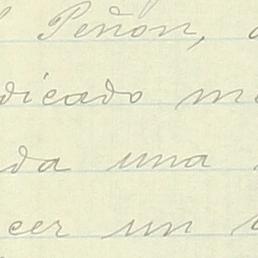 Peñon,
dicado
da una
cer un